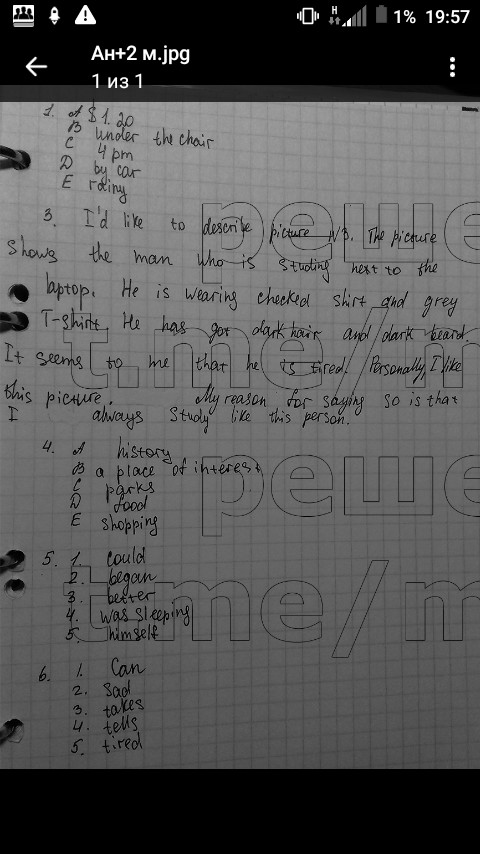 H
1% 19:57
Ан+2 м.jpg
1 из 1
1. A $1.20
B under the chair
C 4 pm
D by car
E rainy
3. I'd like to describe picture №3. The picture
shows the man who is studing next to the
laptop. He is wearing checked shirt and grey
T-shirt. He has got dark hair and dark beard.
It seems to me that he is tired. Personally, I like
this picture. My reason for saying so is that
I always study like this person.
4. A history
B a place of interest
C parks
D food
E shopping
5. 1. could
2. began
3. better
4. was sleeping
5. himself
6. 1. Can
2. sad
3. takes
4. tells
5. tired
реше
t.me/m
реше
t.me/m